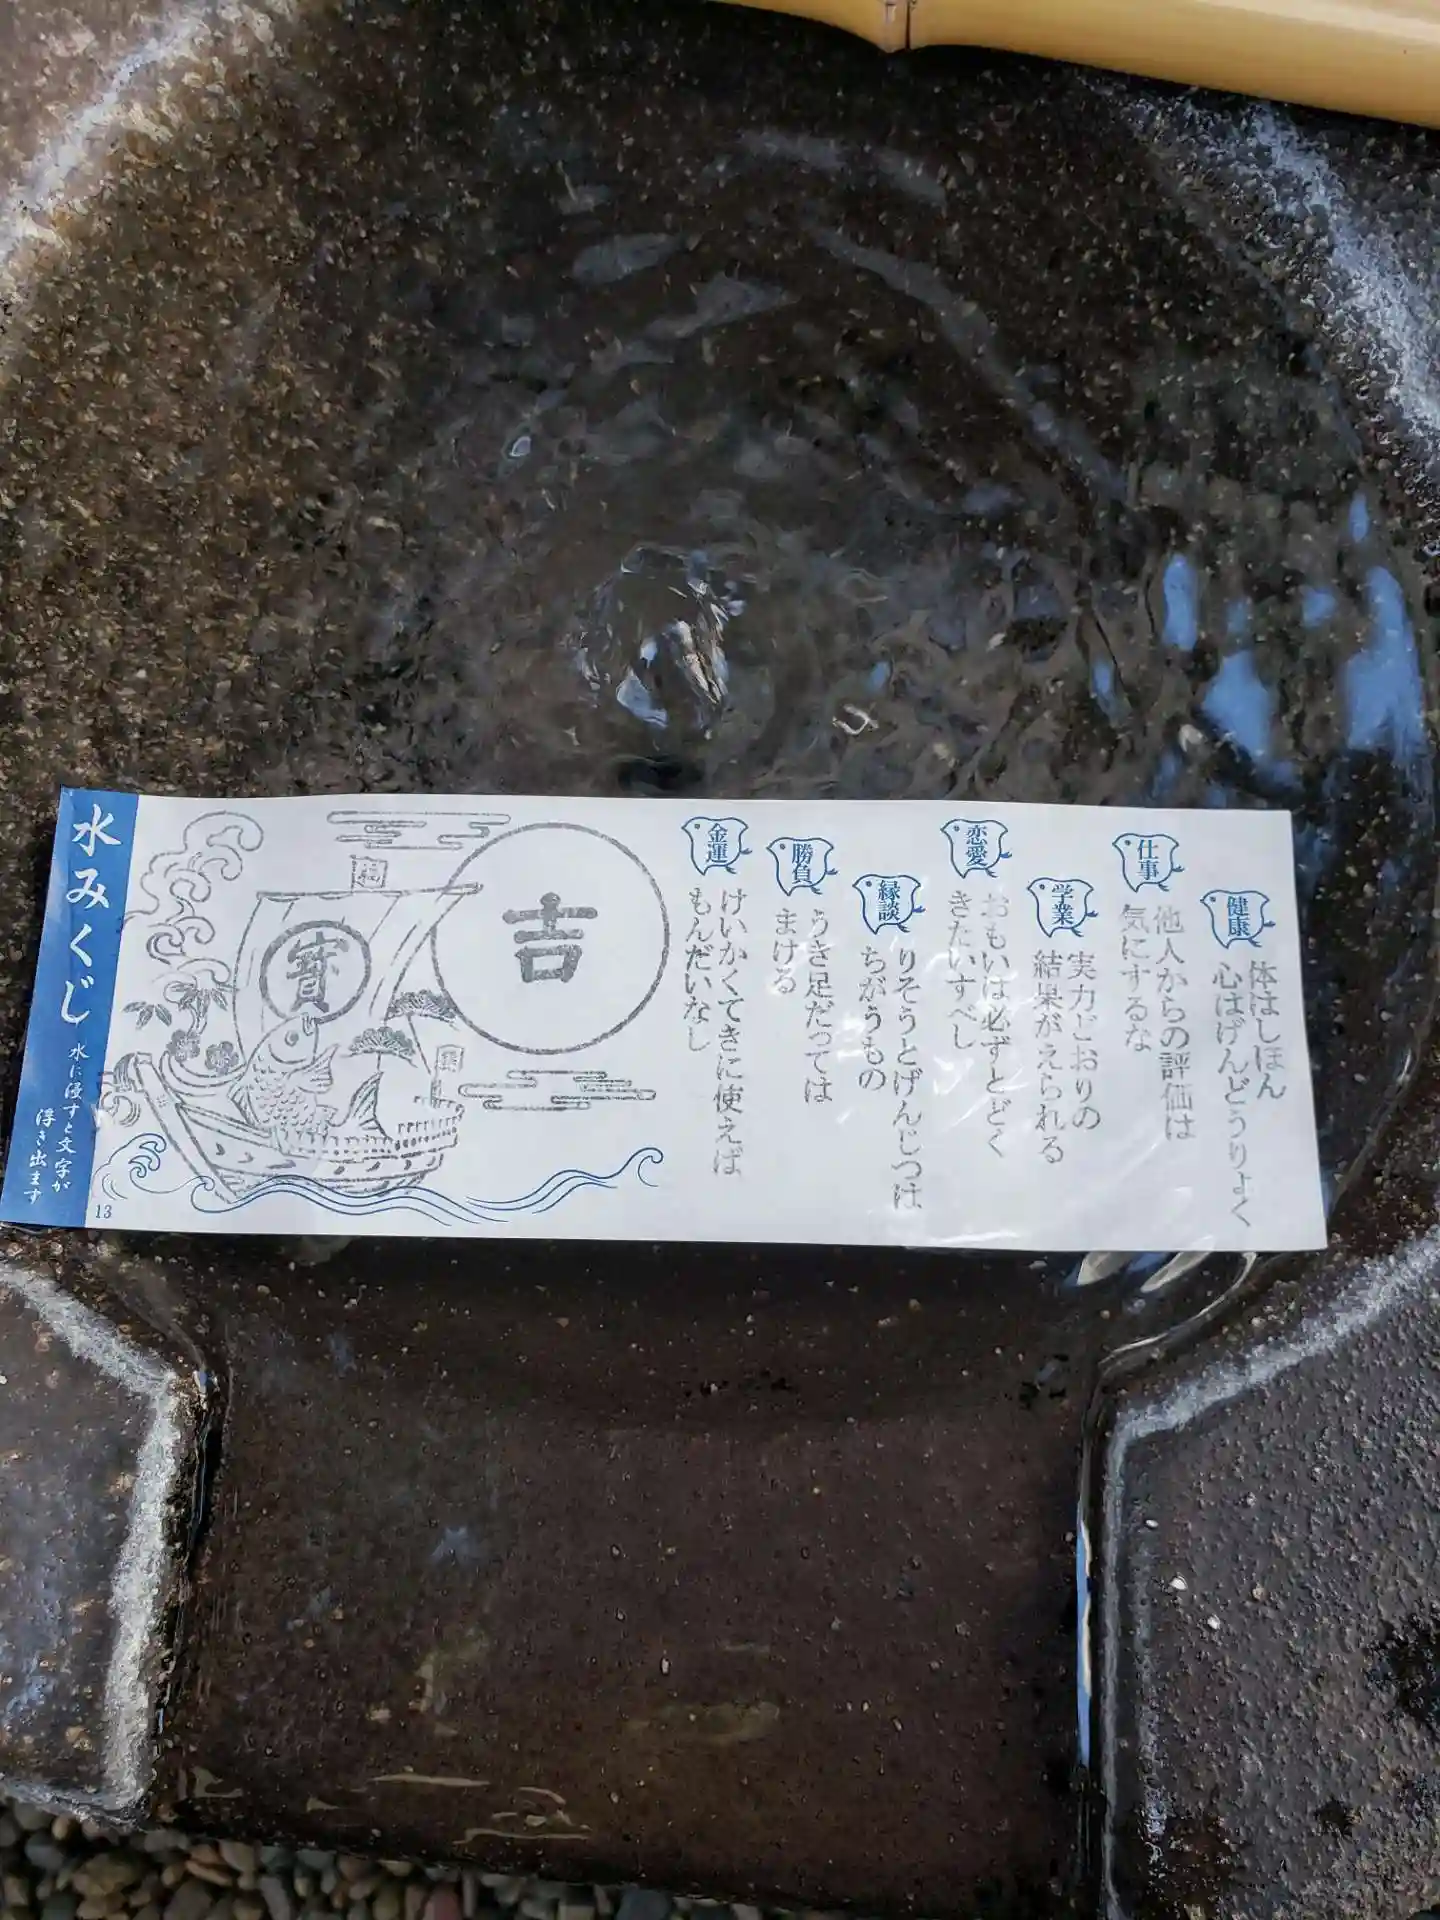 健康
体はしほん
心はげんどうりょく
仕事
他人からの評価は
気にするな
学業
実力どおりの
結果がえられる
恋愛
おもいは必ずとどく
きたいすべし
縁談
りそうとげんじつは
ちがうもの
勝負
うき足だっては
まける
金運
けいかくてきに使えば
もんだいなし
吉
寳
水みくじ
水に浸すと文字が
浮き出ます
13